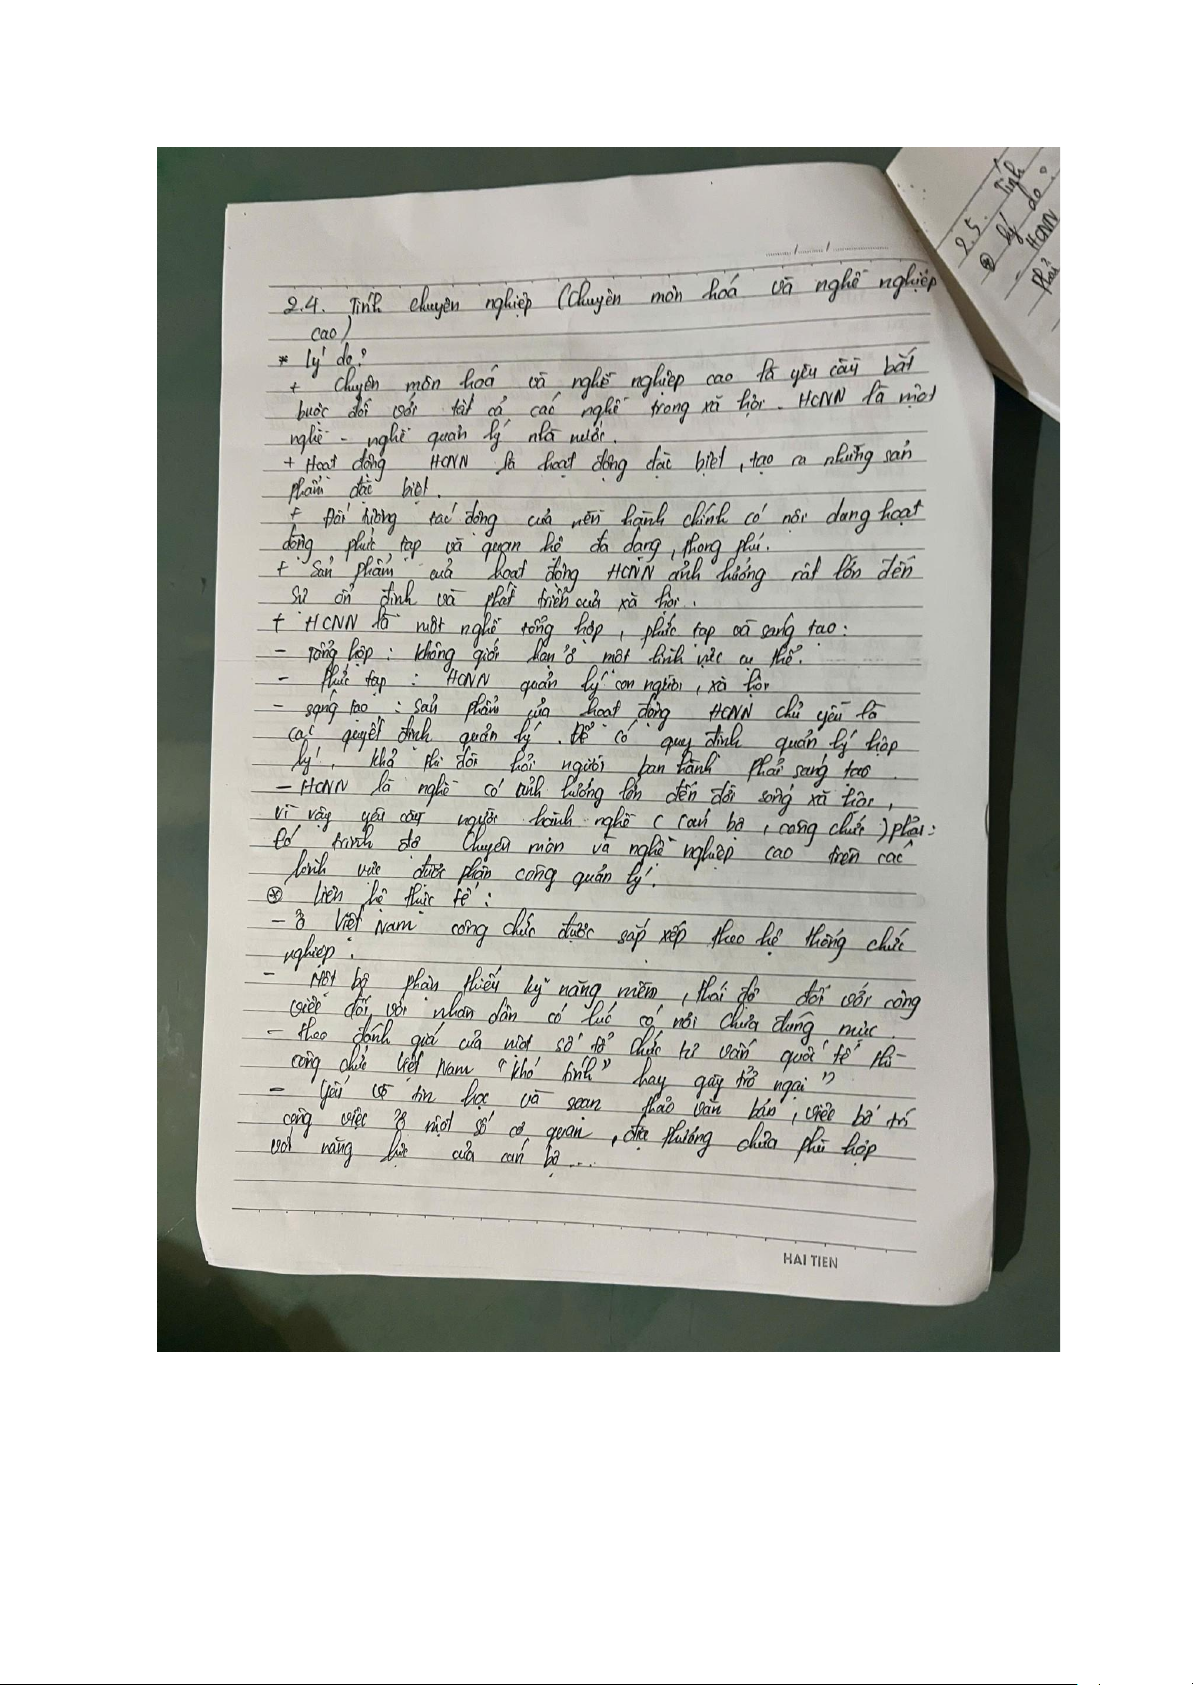 2.4. Tính chuyên nghiệp (Chuyên môn hoá và nghề nghiệp
cao)
* Lý do:
+ Chuyên môn hoá và nghề nghiệp cao là yêu cầu bắt
buộc đối với tất cả các nghề trong xã hội. HCNN là một
nghề - nghề quản lý nhà nước.
+ Hoạt động HCNN là hoạt động đặc biệt, tạo ra những sản
phẩm đặc biệt.
+ Đối tượng tác động của nền hành chính có nội dung hoạt
động phức tạp và quan hệ đa dạng, phong phú.
+ Sản phẩm của hoạt động HCNN ảnh hưởng rất lớn đến
sự ổn định và phát triển của xã hội.
+ HCNN là một nghề tổng hợp, phức tạp và sáng tạo:
- Tổng hợp: không giới hạn ở một lĩnh vực cụ thể.
- Phức tạp: HCNN quản lý con người, xã hội
- sáng tạo: sản phẩm của hoạt động HCNN chủ yếu là
các quyết định quản lý. Để có quy định quản lý hợp
lý, khả thi đòi hỏi người ban hành phải sáng tạo.
- HCNN là nghề có ảnh hưởng lớn đến đời sống xã hội,
vì vậy yêu cầu người hành nghề (cán bộ, công chức) phải:
Có trình độ chuyên môn và nghề nghiệp cao trên các
lĩnh vực được phân công quản lý.
⊛ Liên hệ thực tế:
- Ở Việt Nam công chức được sắp xếp theo hệ thống chức
nghiệp.
- Một bộ phận thiếu kỹ năng mềm, thái độ đối với công
việc đối với nhân dân có lúc có nơi chưa đúng mực.
- theo đánh giá của một số tổ chức tư vấn quốc tế thì
công chức Việt Nam "khó tính" hay gây trở ngại"
- Yếu về tin học và soạn thảo văn bản, việc bố trí
công việc ở một số cơ quan, địa phương chưa phù hợp
với năng lực của cán bộ....
HAI TIEN
2.5. Tính
⊛ lý do:
- HCNN
phải